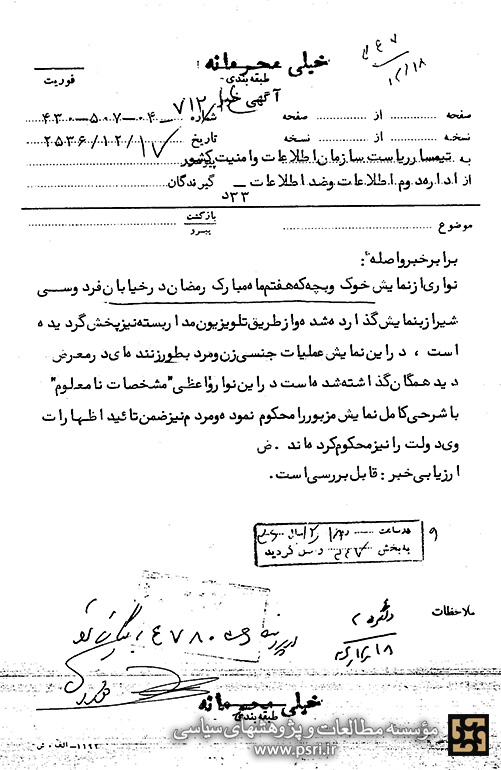 خیلی محرمانه
طبقه بندی-
فوریت
آگهی خبر
صفحه .......... از .......... صفحه
شماره ۷۱۲ - ۰۴ - ۵۰۷ - ۴۳۰
نسخه .......... از .......... نسخه
تاریخ ۲۵۳۶/۱۲/۱۷
به تیمسار ریاست سازمان اطلاعات و امنیت کشور
پیوست
از اداره دوم اطلاعات و ضد اطلاعات – د۳۳
گیرندگان
بازگشت
پیرو
موضوع
برابر خبر واصله :
نواری از نمایش خوک و بچه که هفتم ماه مبارک رمضان در خیابان فردوسی
شیراز بنمایش گذارده شده و از طریق تلویزیون مدار بسته نیز پخش گردیده
است ، در این نمایش عملیات جنسی زن و مرد بطور زننده ای در معرض
دید همگان گذاشته شده است در این نوار واعظی "مشخصات نامعلوم"
با شرحی کامل نمایش مزبور را محکوم نموده و مردم نیز ضمن تائید اظهارات
وی دولت را نیز محکوم کرده اند . ض
ارزیابی خبر : قابل بررسی است .
به بخش
گردید
ملاحظات
خیلی محرمانه
طبقه بندی-
۱۱۹۲ - الف - ش
مؤسسه مطالعات و پژوهشهای سیاسی
www.psri.ir